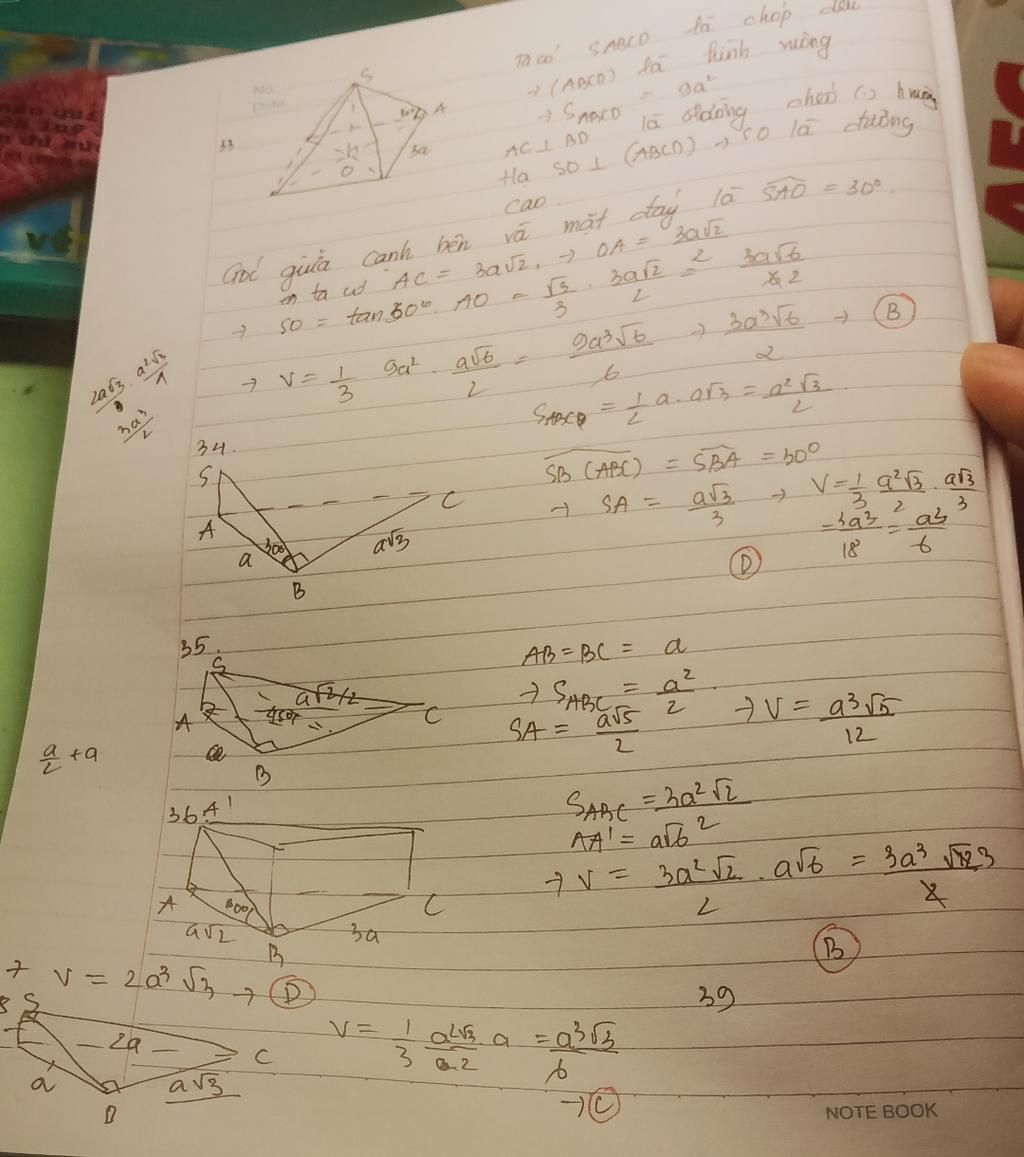 No.
Date
33
S
A
3a
O
Ta có SABCD là chóp đều
→ (ABCD) là hình vuông
→ S_ABCD = 9a²
AC ⊥ BD là đường chéo (.) h vuông
Hạ SO ⊥ (ABCD) → SO là đường
cao.
Góc giữa cạnh bên và mặt đáy là SAO = 30°.
ta có AC = 3a√2, → OA = 3a√2/2
→ SO = tan 30°. AO = √3/3 . 3a√2/2 = 3a√6/2
→ V = 1/3 9a² . a√6/2 = 9a³√6/6 → 3a³√6/2 → B
2a√3 . a²√3
3a³/2
S_ABCD = 1/2 a.a√3 = a²√3/2
34.
S
A
C
a
30°
a√3
B
SB (ABC) = SBA = 30°
→ SA = a√3/3 → V = 1/3 a²√3/2 . a√3/3
= 3a³/18 = a³/6
D
35.
S
a√2/2
A
45°
C
a
B
AB = BC = a
→ S_ABC = a²/2.
SA = a√5/2 → V = a³√5/12
a/2 + a
36
A'
A
C
a√2
3a
B
S_ABC = 3a²√2/2
AA' = a√6
→ V = 3a²√2/2 . a√6 = 3a³√3
B
7 V = 2a³√3 → D
39
8
S
2a
C
a
a√3
B
V = 1/3 a²√3/2 . a = a³√3/6
→ C
NOTE BOOK